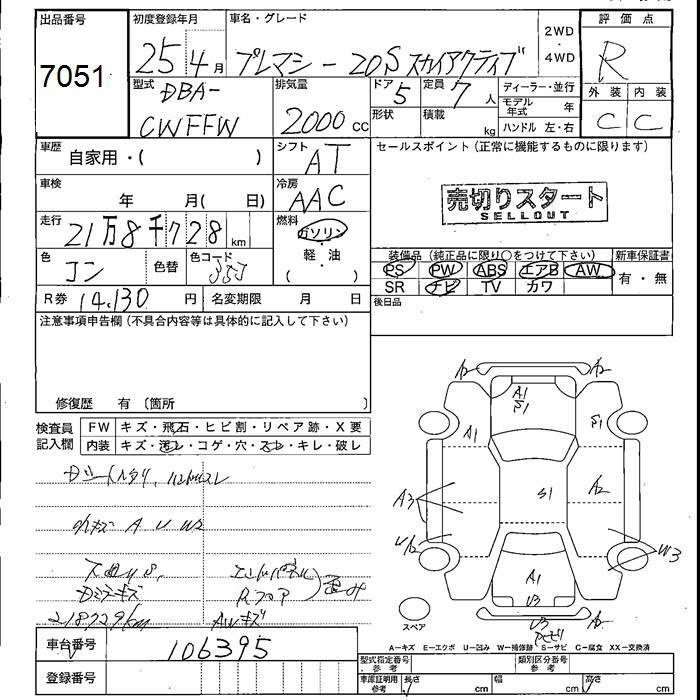 出品番号
7051
初度登録年月
25 4月
車名・グレード
プレマシー 20S スカイアクティブ
2WD
・
4WD
評価点
R
外装 内装
C C
型式
DBA-
CWFFW
排気量
2000 cc
ドア 5
定員 7 人
形状
積載 kg
ディーラー・並行
モデル年式 年
ハンドル 左・右
車歴
自家用・( )
シフト
AT
車検
年 月( 日)
冷房
AAC
走行
21万8千728 km
燃料
ガソリン
・
軽・油
( )
色
コン
色替
色コード
35J
R券 14,130 円
名変期限 月 日
セールスポイント(正常に機能するものに限ります)
売切りスタート
SELLOUT
装備品(純正品に限り○をつけて下さい)
新車保証書
PS PW ABS エアB AW
SR ナビ TV カワ
有・無
後日品
注意事項申告欄(不具合内容等は具体的に記入して下さい)
修復歴 有〔箇所 〕
検査員
記入欄
FW キズ・飛石・ヒビ割・リペア跡・X要
内装 キズ・汚レ・コゲ・穴・スレ・キレ・破レ
A U W2
Dミラーキズ
Rフロア
218729km
AWキズ
A2 A2
A1
S1
A1
S1
A3
S1
A2
U2
W3
A1
U3
U3
A2
スペア
A－キズ E－エクボ U－凹み W－補修跡 S－サビ C－腐食 XX－交換済
車台番号
106395
登録番号
型式指定番号
参考
類別区分番号
参考
車庫証明用
参考
長さ cm
幅 cm
高さ cm